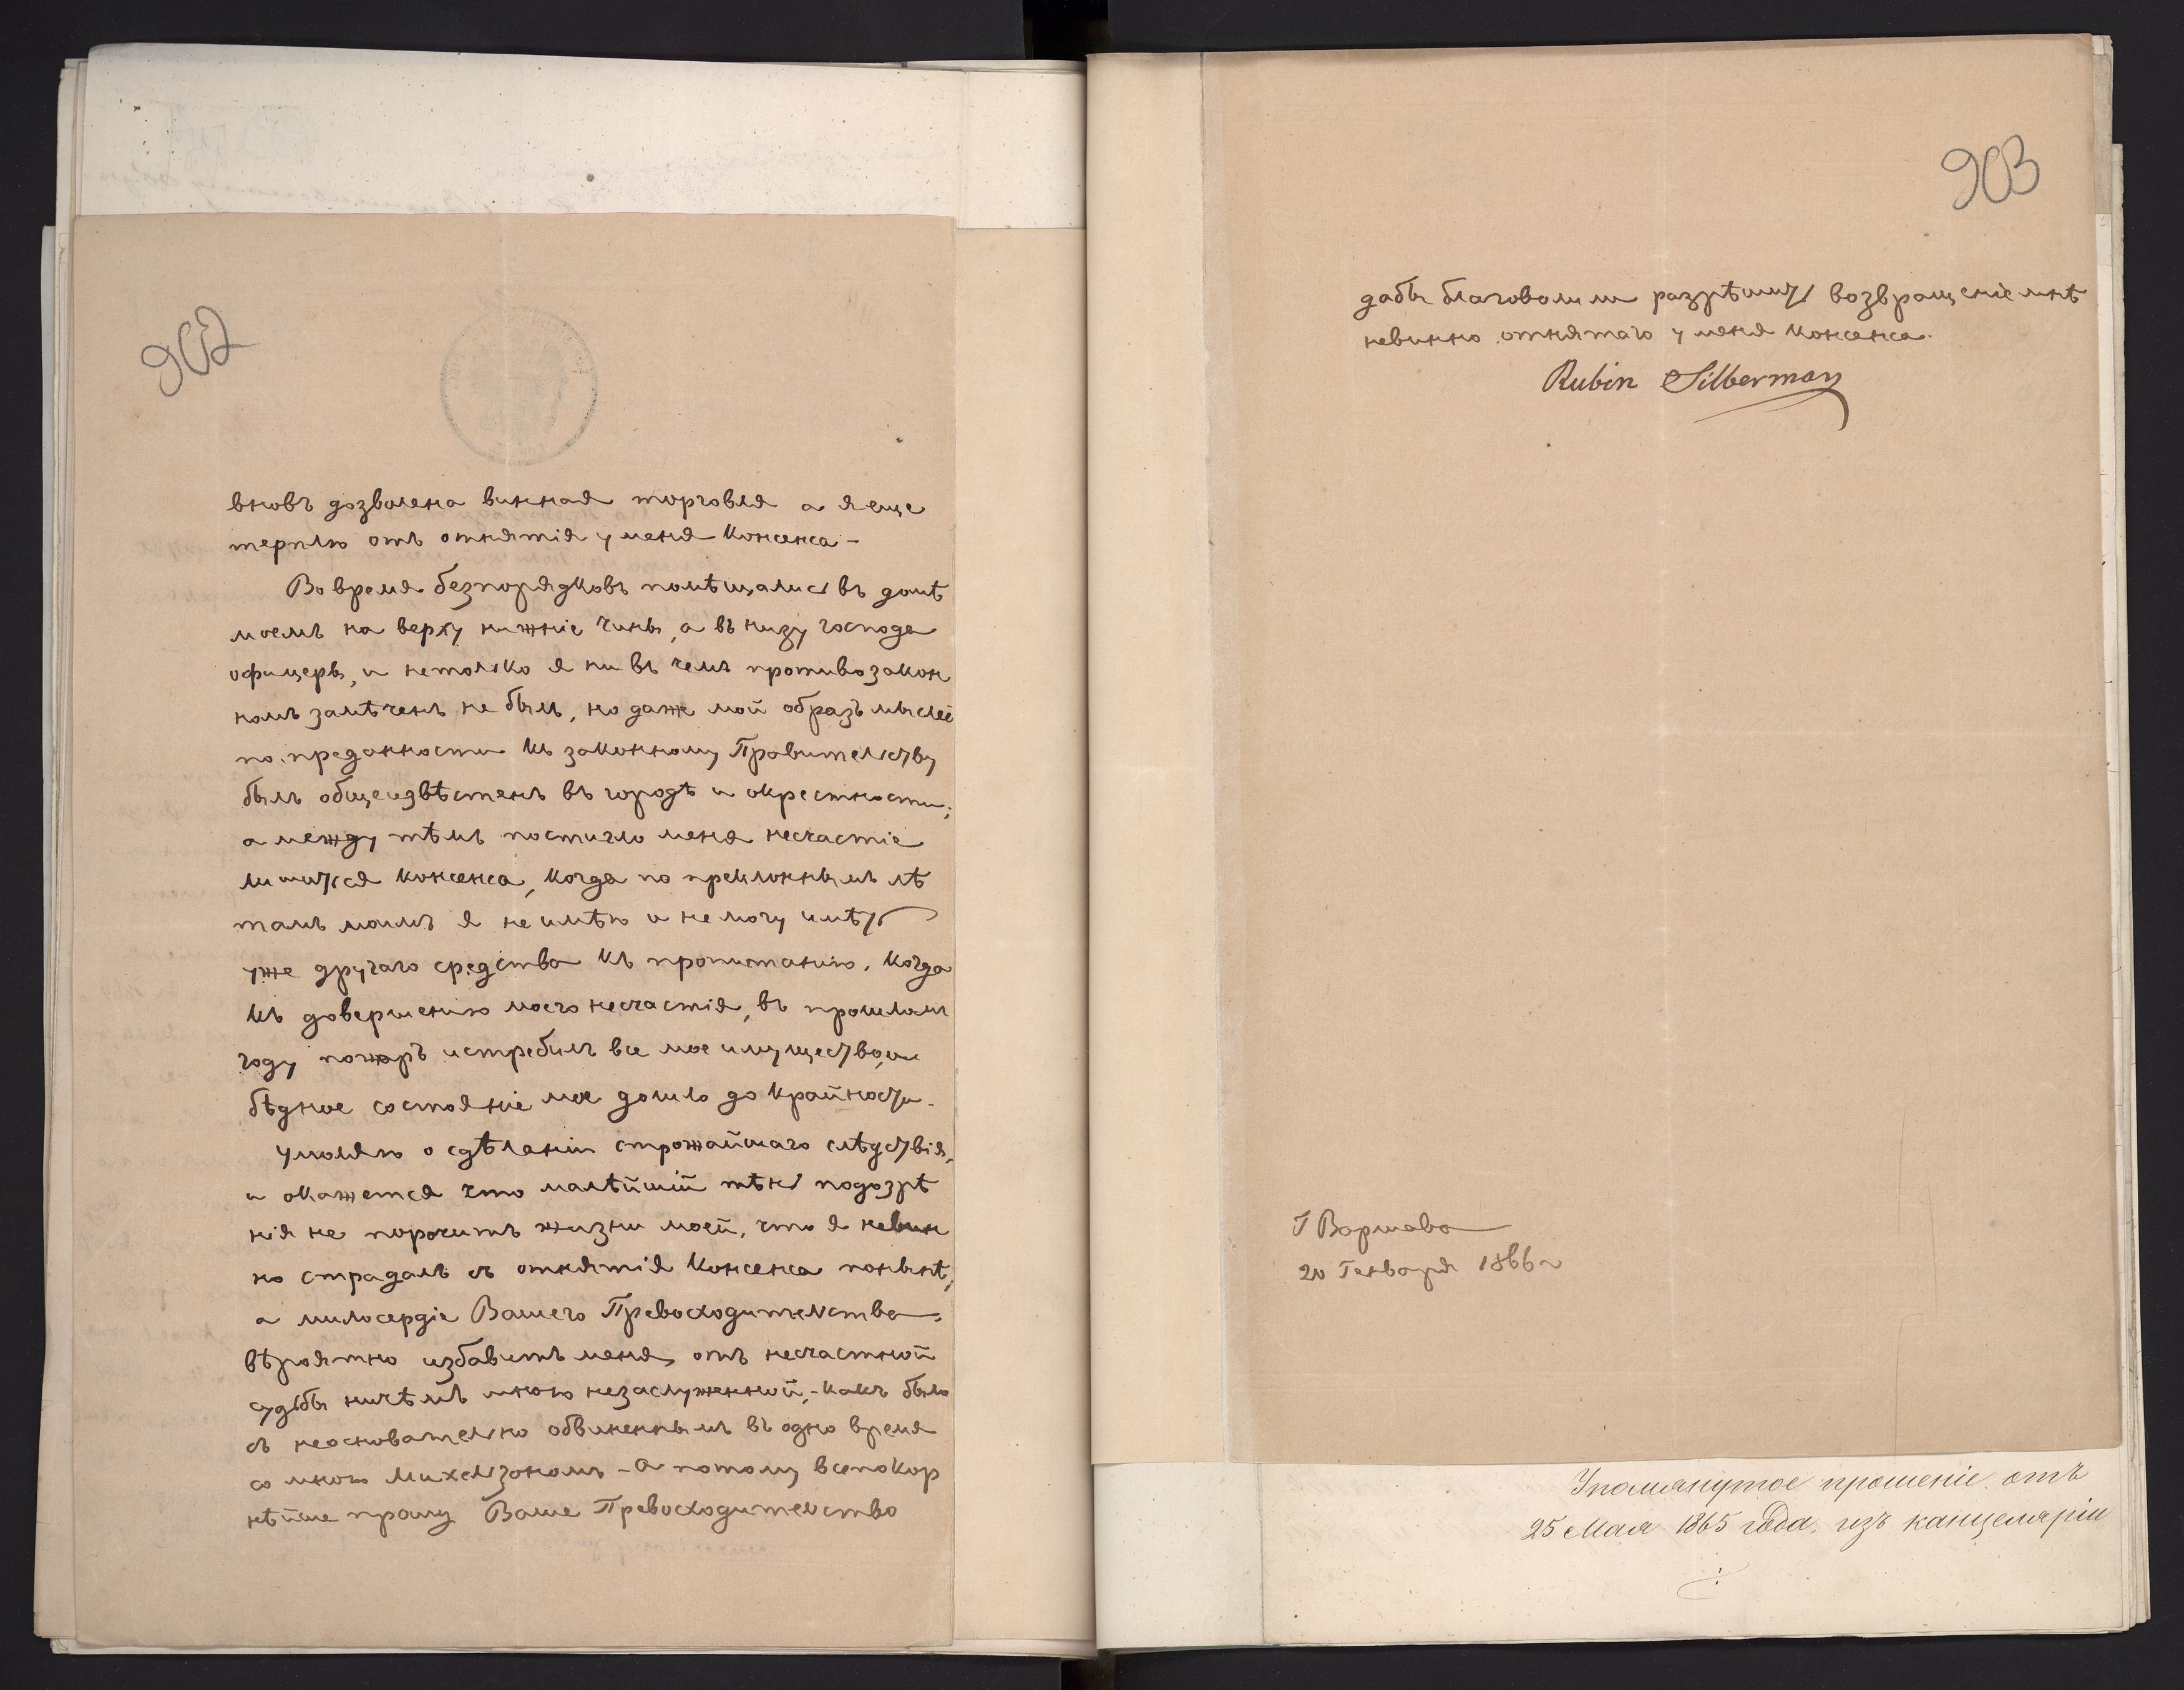 902
вновъ дозволена винная торговля а я еще
терплю отъ отнятія у меня консенса -
Во время безпорядковъ помѣщались въ домѣ
моемъ на верху нижніе чины, а въ низу господа
офицеры, и нетолько я ни въ чемъ противозакон
номъ замѣченъ не былъ, но даже мой образъ мыслей
по преданности къ законному Правительству
былъ общеизвѣстенъ въ городѣ и окрестности;
а между тѣмъ постигло меня несчастіе
лишиться консенса, когда по преклоннымъ лѣ
тамъ моимъ я не имѣю и не могу имѣть
уже другаго средства къ пропитанію, когда
къ довершенію моего несчастія, въ прошломъ
году пожаръ истребилъ все мое имущество, и
бѣдное состояніе мое дошло до крайности.
Умоляю о сдѣланіи строжайшаго слѣдствія,
и окажется что малѣйшій тѣнь подозрѣ
нія не порочитъ жизни моей, что я невин
но страдалъ съ отнятія консенса понынѣ,
а милосердіе Вашего Превосходительства
вѣроятно избавитъ меня, отъ несчастной
судьбы ничѣмъ мною незаслуженной, - какъ было
съ неосновательно обвиненнымъ въ одно время
со мною Михельзономъ - а потому всепокор
нѣйше прошу Ваше Превосходительство
903
дабы благоволили разрѣшить возвращеніе мнѣ
невинно отнятаго у меня консенса.
Rubin Silberman
Г Варшава
20 Генваря 1866 г
Упомянутое прошеніе отъ
25 Мая 1865 года, изъ канцеляріи